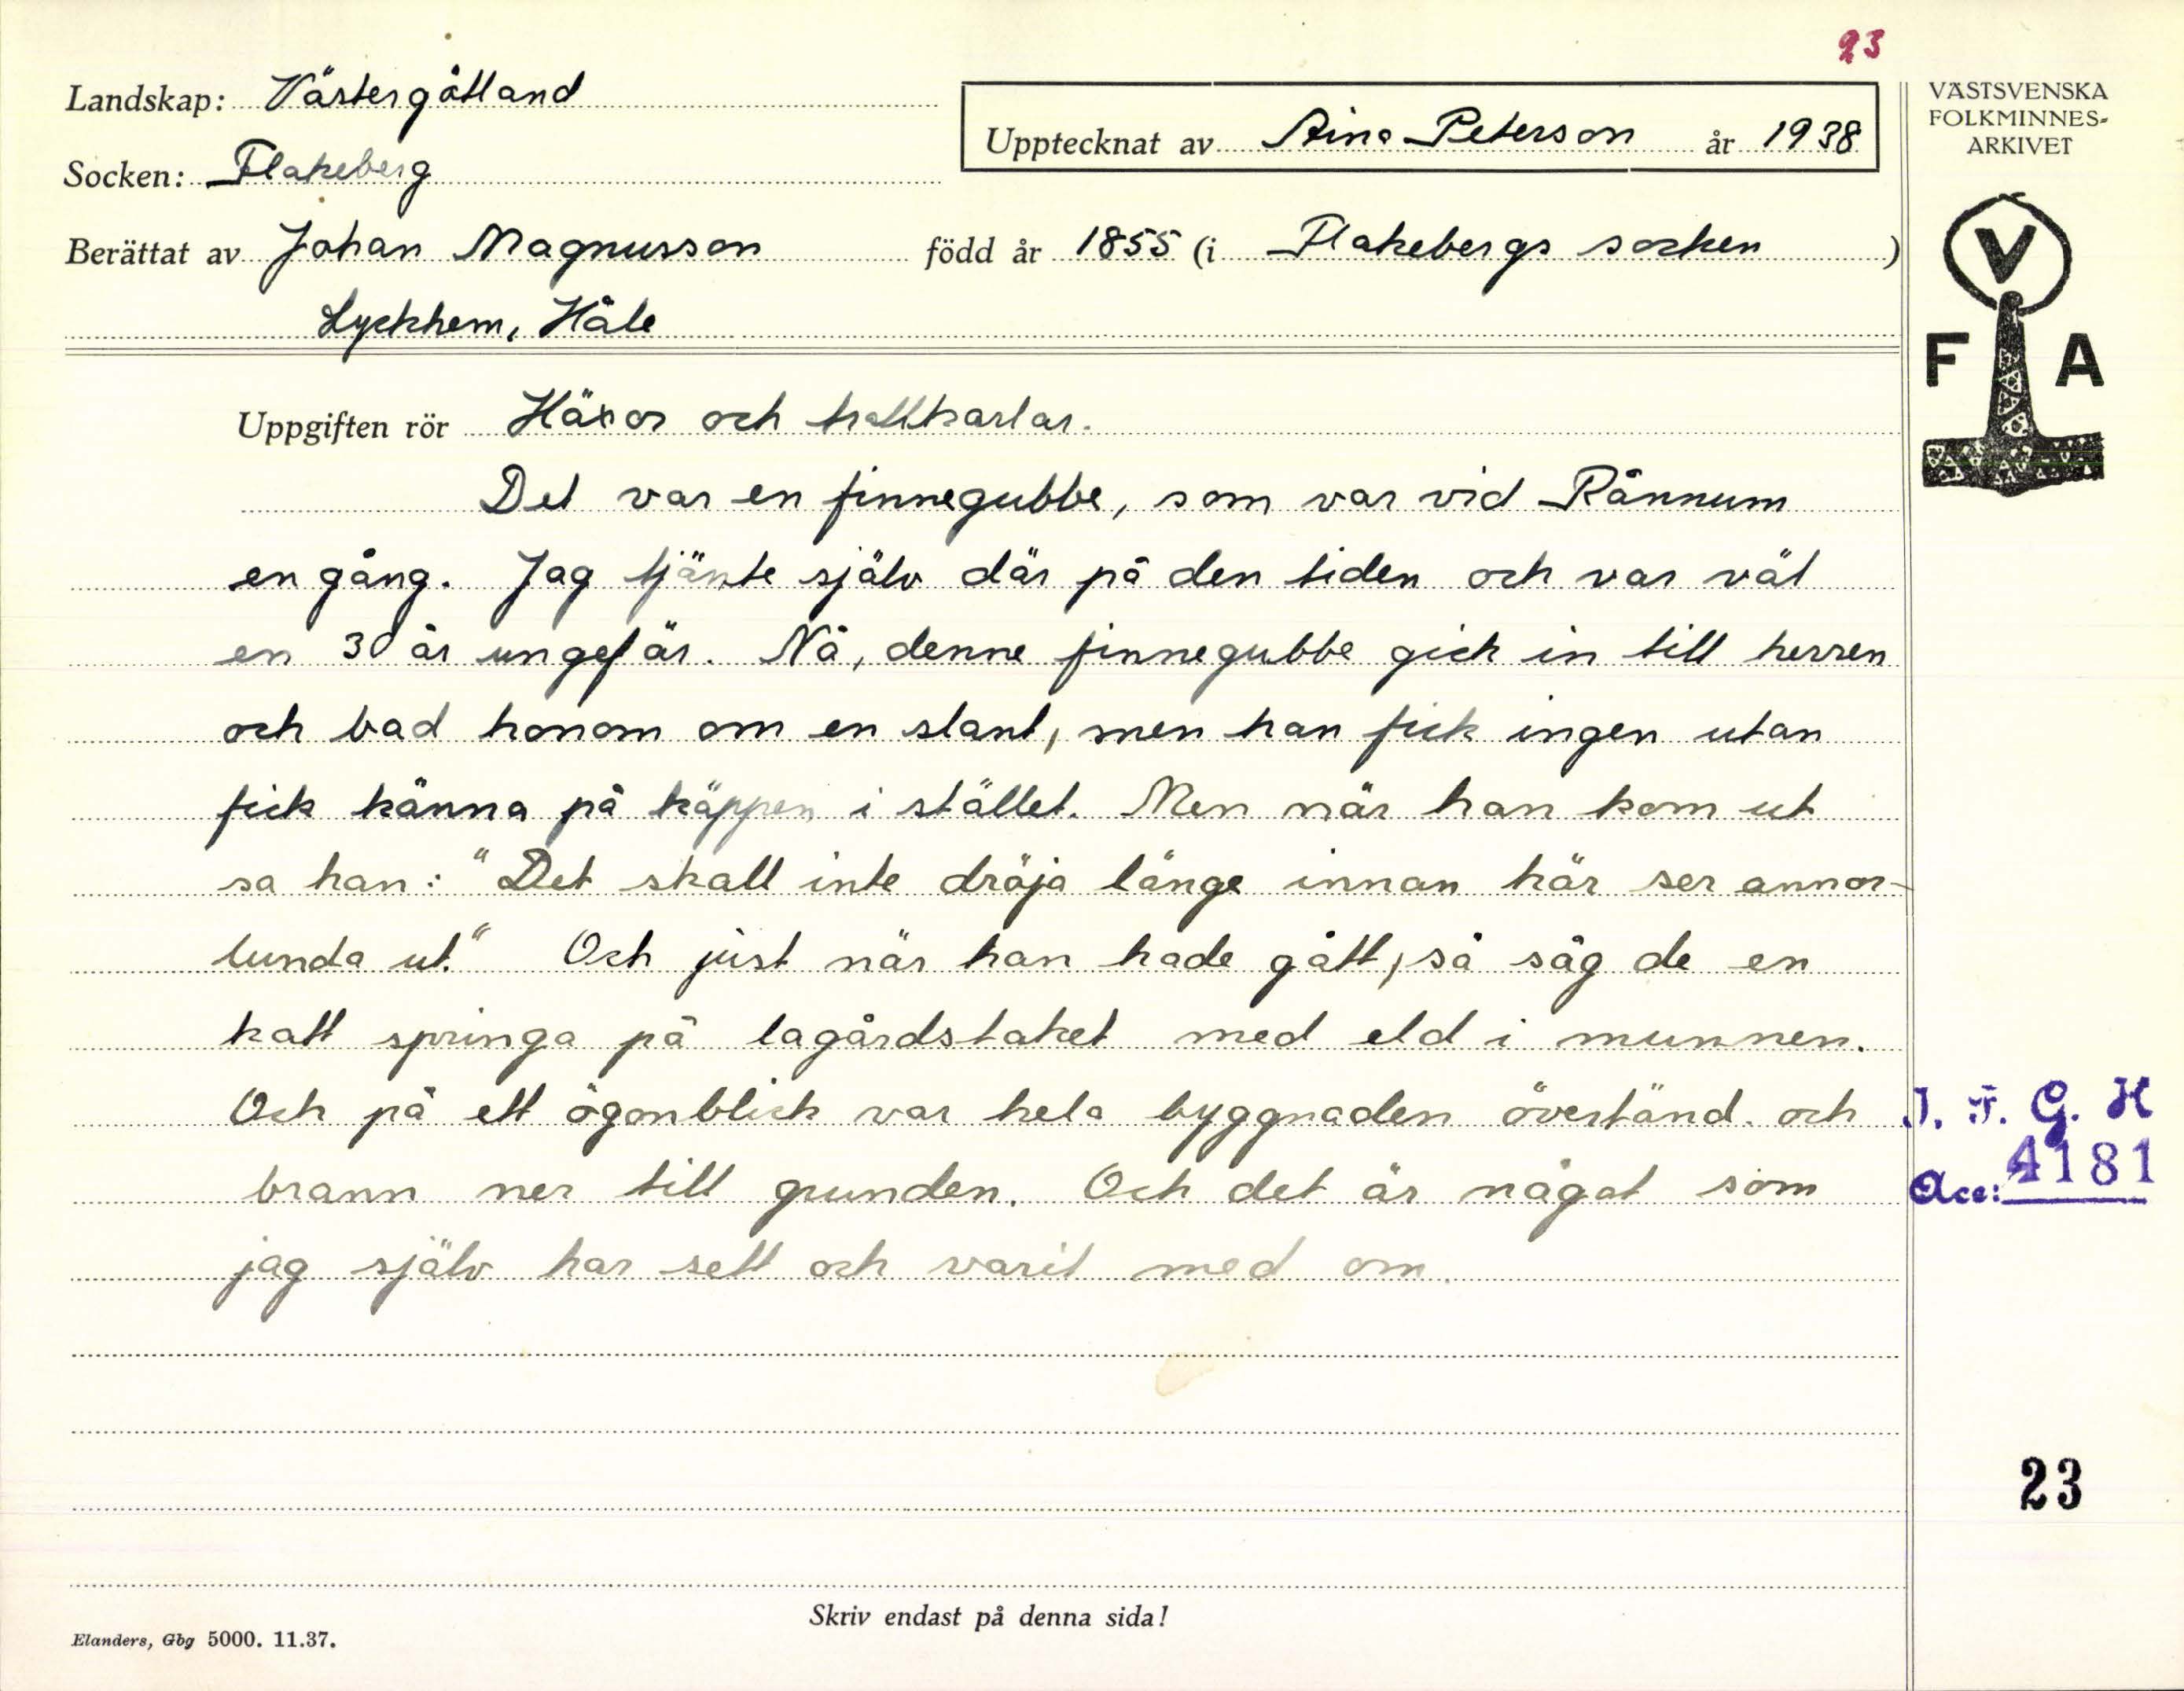 23
Landskap: Västergötland
Upptecknat av Aina Peterson år 1938
Socken: Flakeberg
Berättat av Johan Magnusson född år 1855 (i Flakebergs socken)
Lyckhem, Håle
VÄSTSVENSKA
FOLKMINNES-
ARKIVET
V
F A
Uppgiften rör Häxor och trollkarlar.
Det var en finnegubbe, som var vid Rånnum
en gång. Jag tjänte själv där på den tiden och var väl
en 30 år ungefär. Nå, denne finnegubbe gick in till herren
och bad honom om en slant, men han fick ingen utan
fick känna på käppen i stället. Men när han kom ut
sa han: "Det skall inte dröja länge innan här ser annor-
lunda ut." Och just när han hade gått, så såg de en
katt springa på lagårdstaket med eld i munnen.
Och på ett ögonblick var hela byggnaden övertänd. och
brann ner till grunden. Och det är något som
jag själv har sett och varit med om.
I. F. G. H
Acc: 4181
23
Skriv endast på denna sida!
Elanders, Gbg 5000. 11.37.